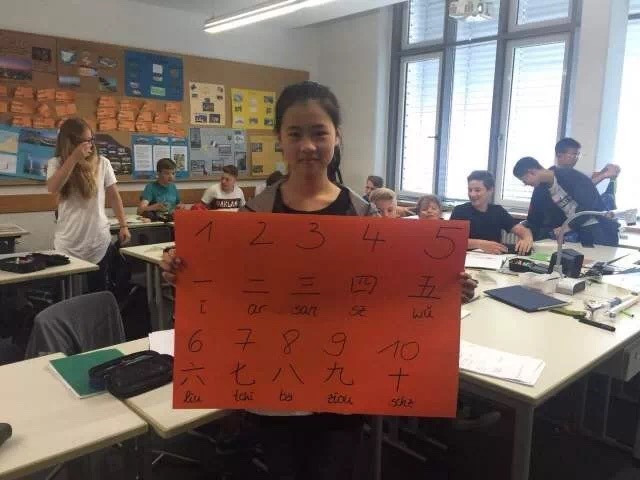 1 2 3 4 5
一 二 三 四 五
ī ar san sz wŭ
6 7 8 9 10
六 七 八 九 十
liu tchi ba ziou schz